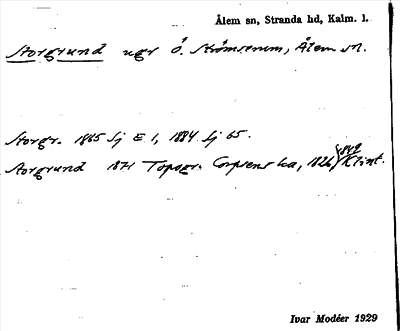 Ålem sn, Stranda hd, Kalm. l.
Storgrund ugr Ö. Strömserum, Ålem sn.
Storgr. 1865 Sj E 1, 1884 Sj 65.
Storgrund 1871 Topogr. Corpsens ka, 1826, 1849 Klint.
Ivar Modéer 1929